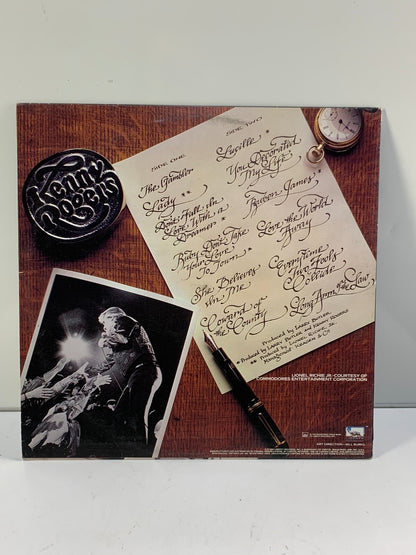 Kenny
Rogers
SIDE ONE
The Gambler
Lady **
Don't Fall In
Love With a
Dreamer *
Ruby Don't Take
Your Love
To Town
She Believes
in Me
Coward of
the County
SIDE TWO
Lucille
You Decorated
My Life
Reuben James
Love the World
Away
Everytime
Two Fools
Collide
Long Arm of the Law
Produced by Larry Butler
* Produced by Larry Butler and Kenny Rogers
** Produced by Lionel Richie, Jr.
Management: Kragen & Co.
LIONEL RICHIE JR.-COURTESY OF
COMMODORES ENTERTAINMENT CORPORATION
ART DIRECTION • BILL BURKS